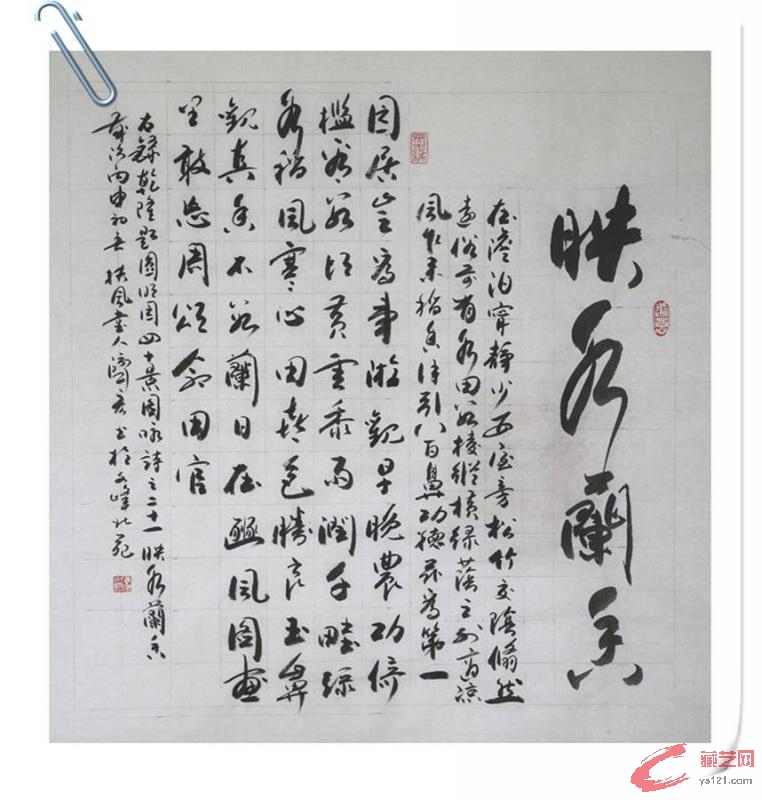 映水蘭香
在澹泊寧靜少西屋旁松竹交陰翛然
遠俗前有水田數棱縱橫綠蔭之外適涼
風乍來稻香徐引八百鼻功德茲為第一
園居豈為事游觀早晚農功倚
檻看數頃黃雲黍雨潤千畦綠
水稻風寒心田喜色勝良玉鼻
觀真香不數蘭日在豳風圖畫
里敢忘周頌命田官
右錄乾隆題圓明園四十景圖詠詩之二十一映水蘭香
歲次丙申初 扶風書人 书於文峰北苑
藏艺网
ys121.com